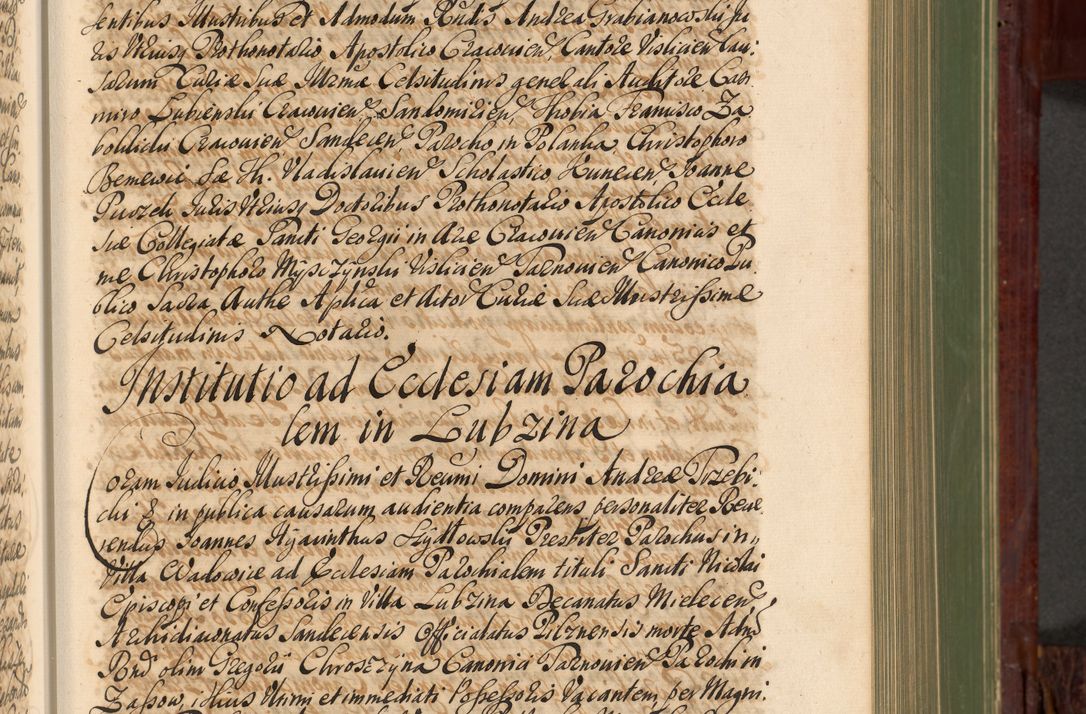 sentibus Illustribus et Admodum Rndis Andrea Grabianowski Ju
ris Utriusq Prothonotario Apostolico Cracovien Cantore Vislicien Cau:
sarum Curiæ Suæ Illrmæ Celsitudinis generali Auditore Casi
miro Lubienski Cracovien, Sandomirien, Thobia Francisco Za
bokliczki Cracovien Sandecen, Parocho in Polanka, Christophoro
Jure Uladislavien Scholastico Kunecen Joanne
Juris Utriusq Doctoribus Prothonotario Apostolico Eccle
siæ Collegiatæ Sancti Georgii in Arce Cracovien Canonicis et
me Christophoro Myszczynski Vislicien Tarnovien Canonico Pu
blico Sacra Authe Aplica et Actor Curiæ Suæ Illustrissimæ
Celsitudinis Notario.
Institutio ad Ecclesiam Parochia
lem in Lubzina
Coram Judicio Illustrissimi et Reumi Domini Andreæ Trzebi:
cki & in publica causarum audientia comparens personaliter Reve
rendus Joannes Hyacinthus Presbiter Parochus in
Villa Wadowice ad Ecclesiam Parochialem tituli Sancti Nicolai
Episcopi et Confessoris in Villa Lubzina Decanatus Mielecen
Archidiaconatus Sandecensis Officialatus Pilznensis morte Adm
Rnd olim Gregorii Chroszczyna Canonici Tarnovien Parochi in
Zassow, illius Ultimi et immediati Possessoris Vacantem, per Magni: